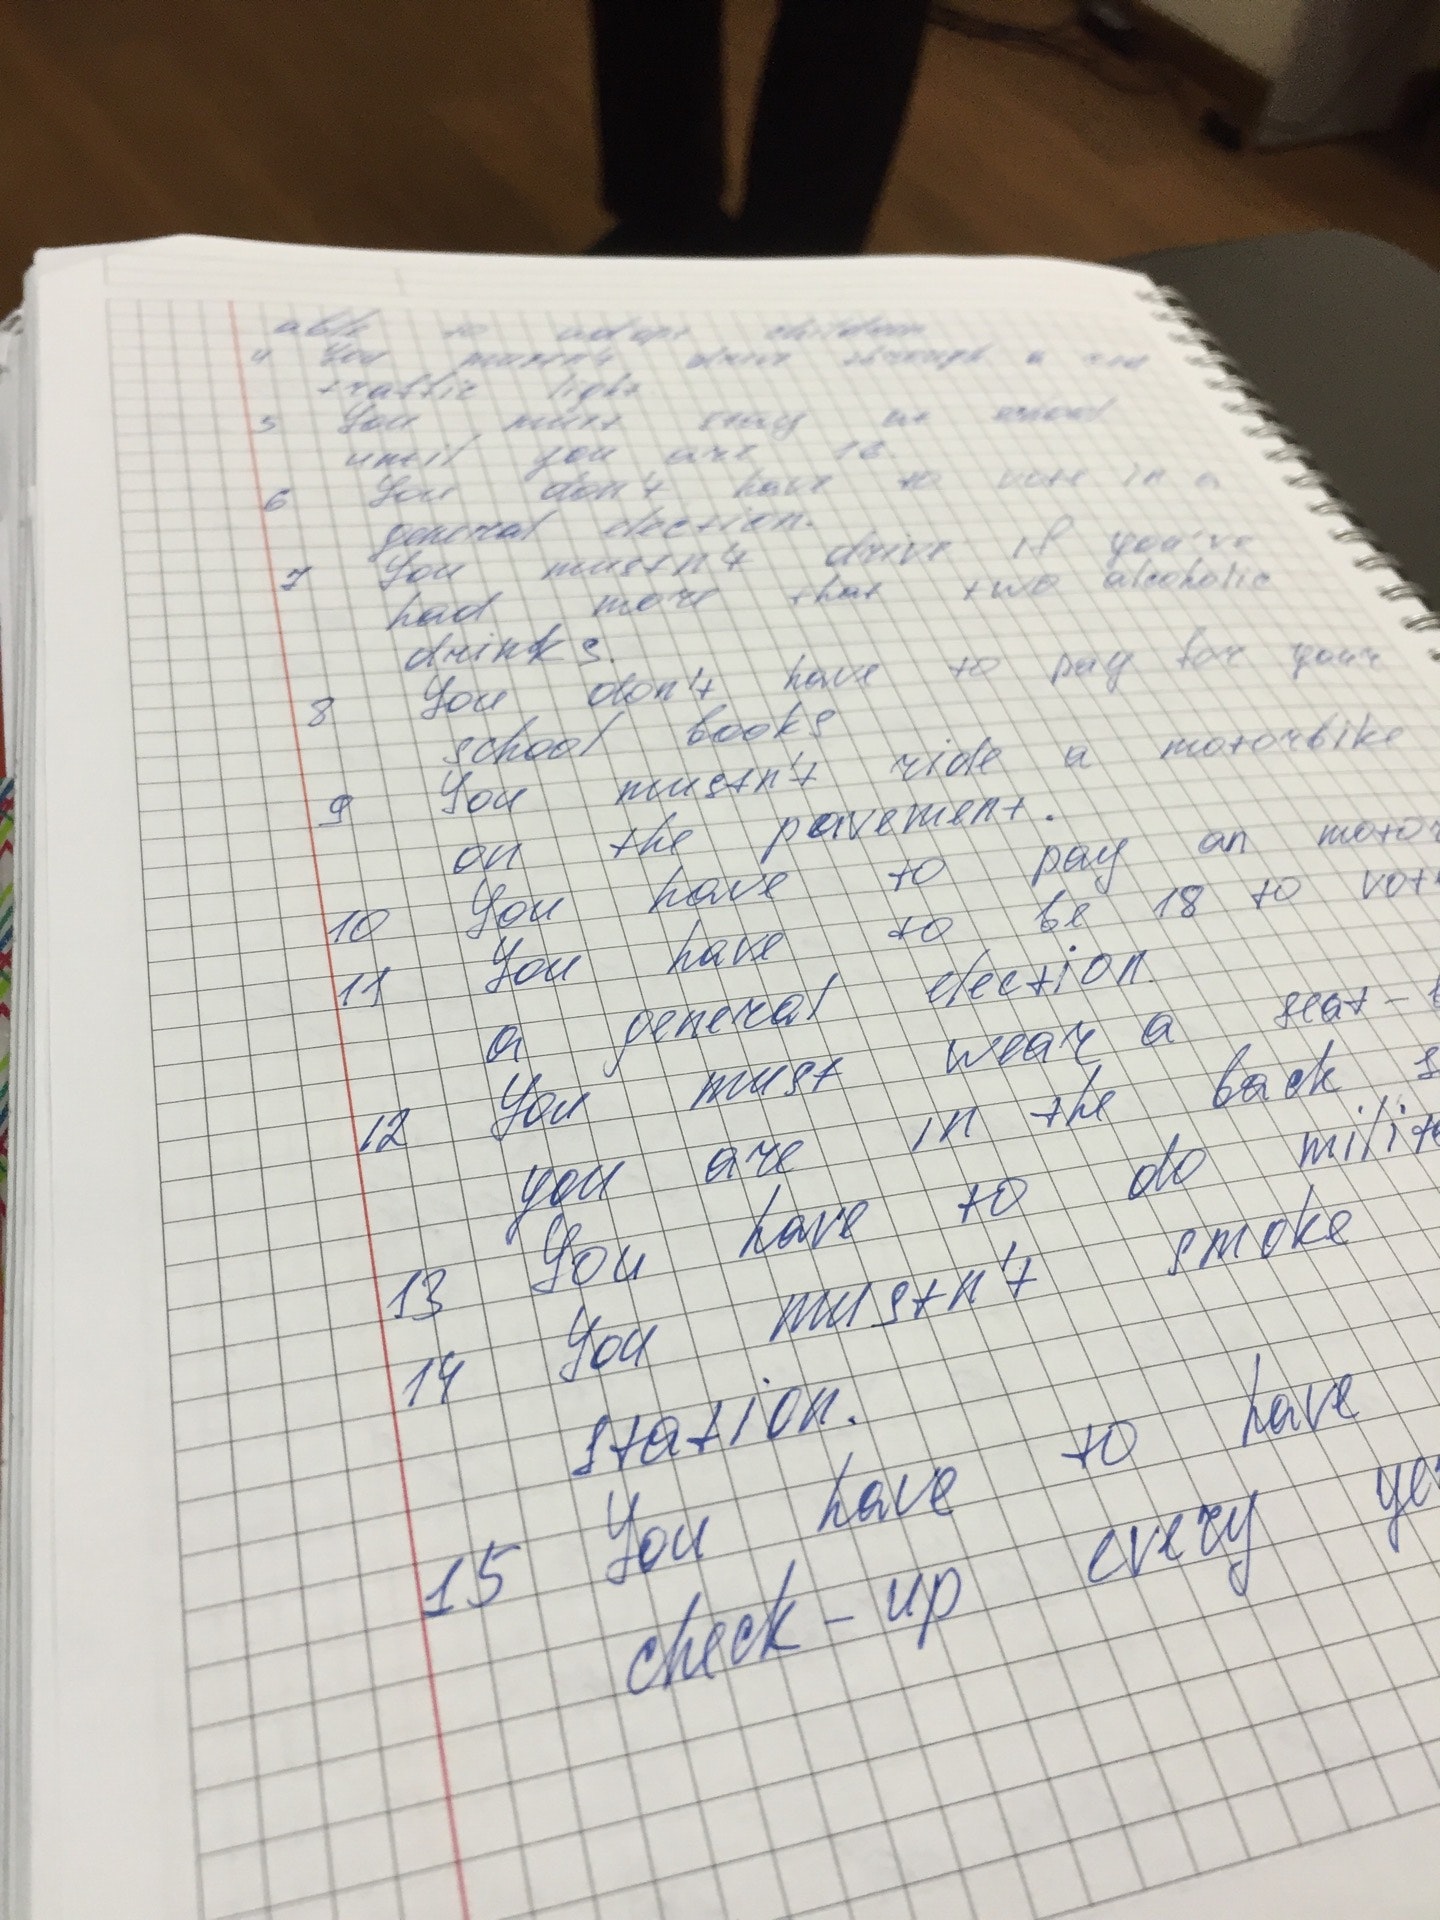 able to adopt children
4 You mustn't drive through a red
traffic light
5 You must stay at school
until you are 16.
6 You don't have to vote in a
general election.
7 You mustn't drive if you've
had more that two alcoholic
drinks.
8 You don't have to pay for your
school books
9 You mustn't ride a motorbike
on the pavement.
10 You have to pay an motor
11 You have to be 18 to vot
a general election.
12 You must wear a seat-b
you are in the back s
13 You have to do milit
14 You mustn't smoke
station.
15 You have to have
check-up every ye